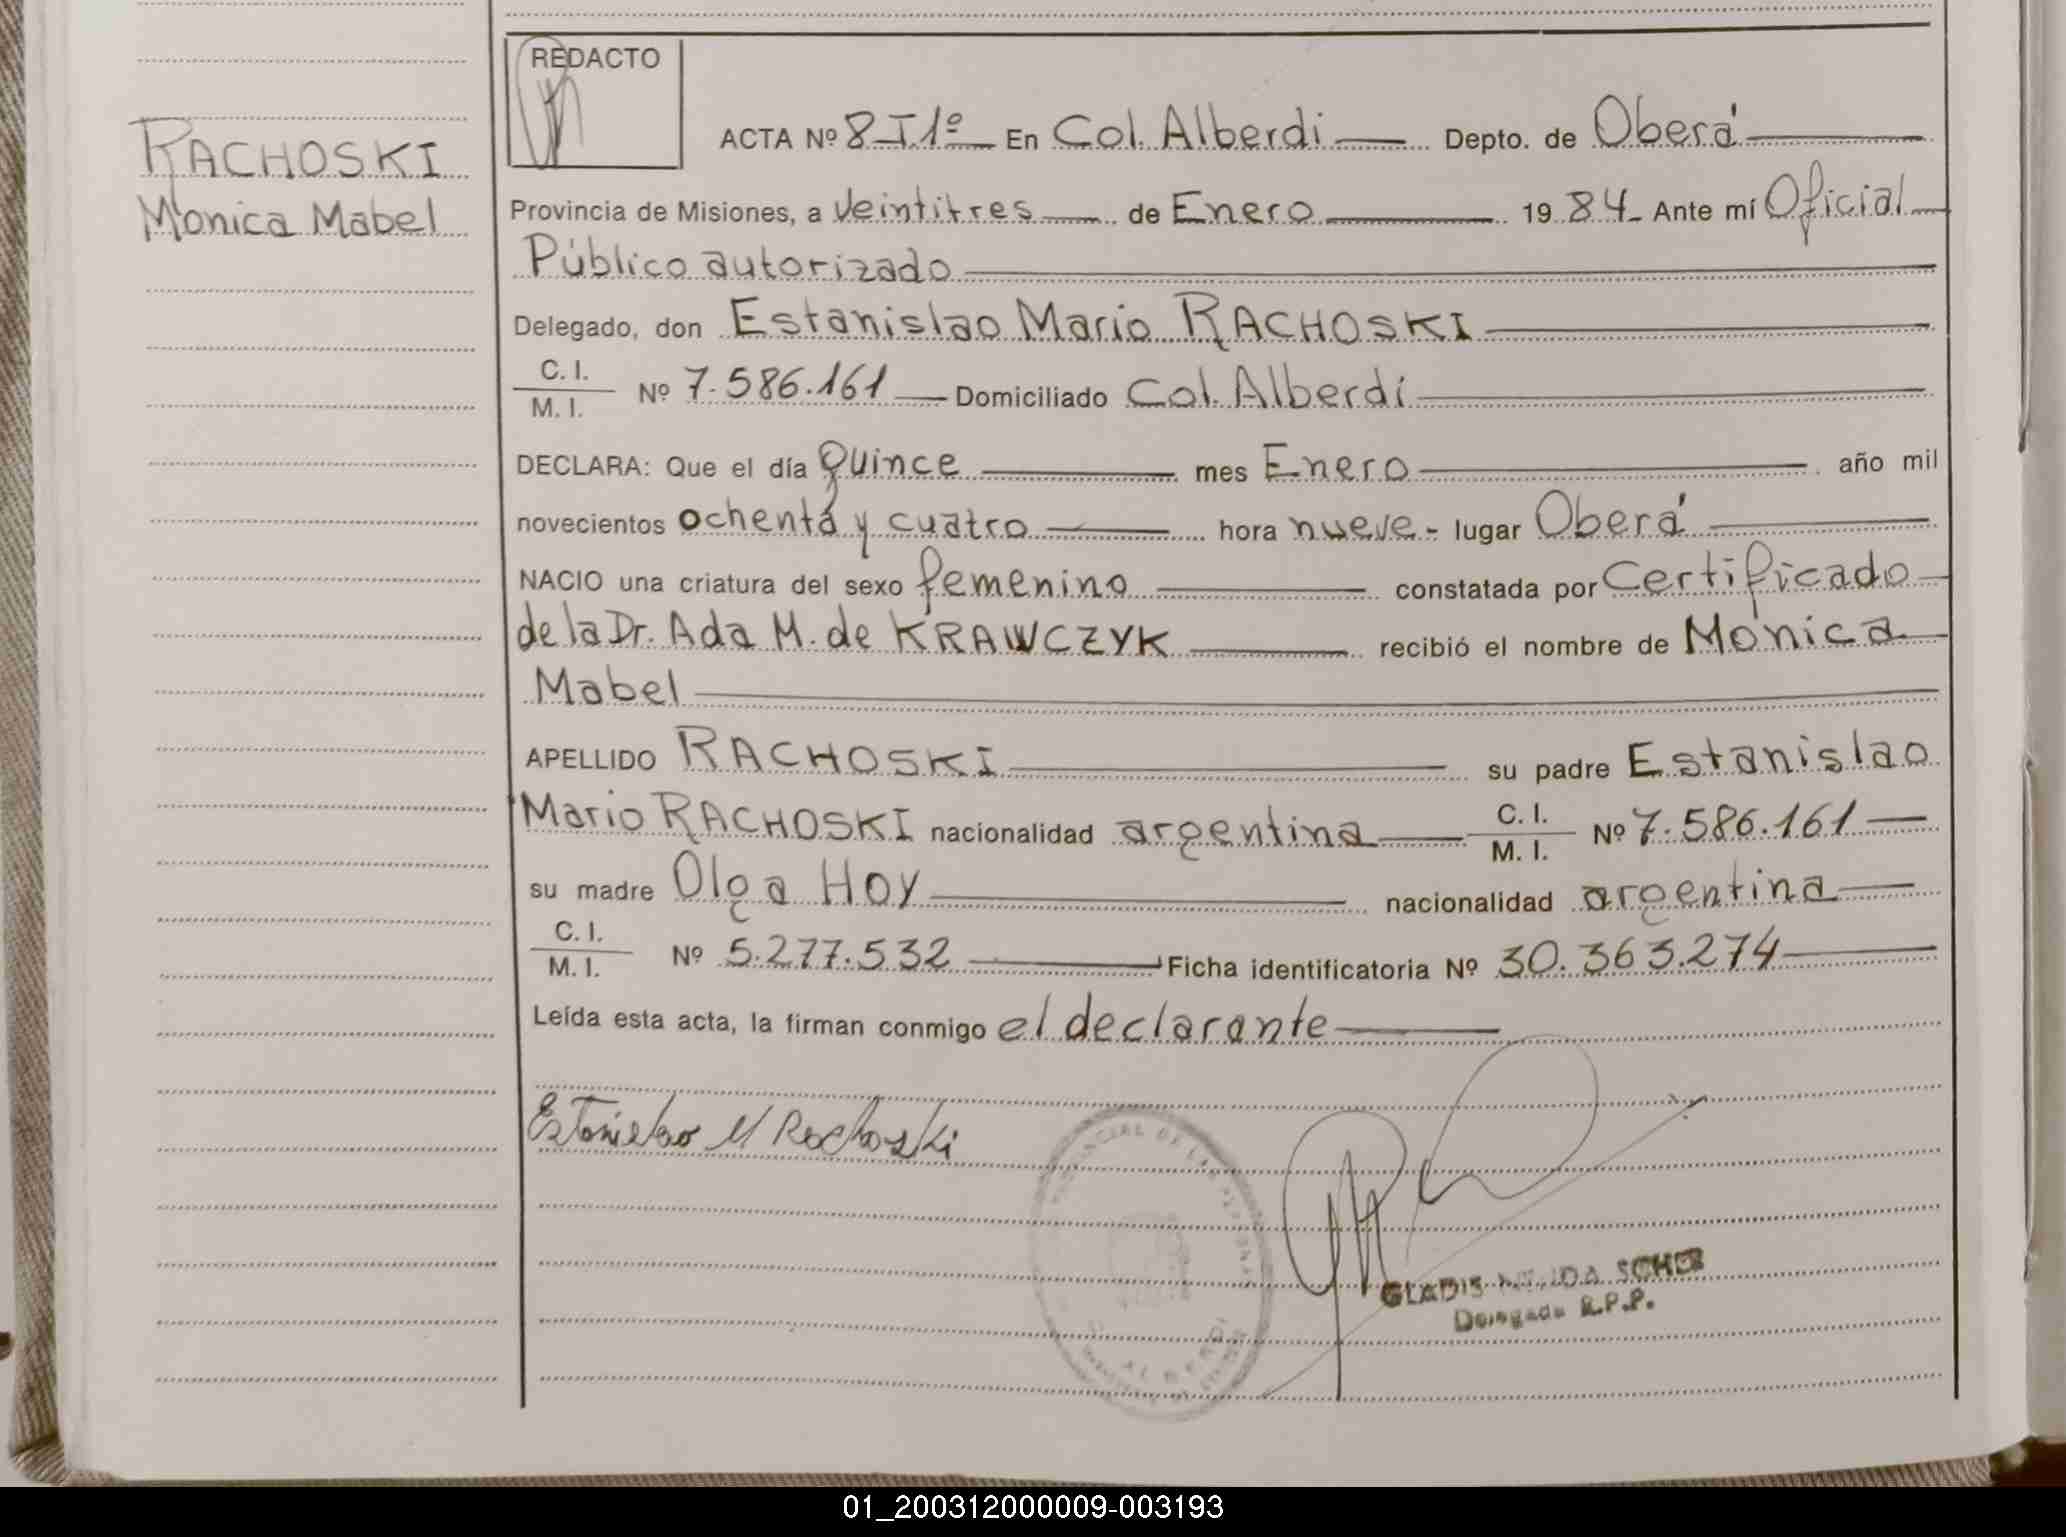 REDACTO
RACHOSKI
Mónica Mabel
ACTA Nº 8-T.1º En Col. Alberdi Depto. de Oberá
Provincia de Misiones, a veintitres de Enero 1984- Ante mí Oficial
Público autorizado
Delegado, don Estanislao Mario RACHOSKI
C. I.
M. I. Nº 7.586.161 Domiciliado Col. Alberdi
DECLARA: Que el día Quince mes Enero año mil
novecientos ochenta y cuatro hora nueve- lugar Oberá
NACIO una criatura del sexo femenino constatada por Certificado
de la Dr. Ada M. de KRAWCZYK recibió el nombre de Mónica
Mabel
APELLIDO RACHOSKI su padre Estanislao
Mario RACHOSKI nacionalidad argentina C. I. M. I. Nº 7.586.161
su madre Olga HOY nacionalidad argentina
C. I.
M. I. Nº 5.277.532 Ficha identificatoria Nº 30.363.274
Leída esta acta, la firman conmigo el declarante
Estanislao M Rachoski
PROVINCIAL DE LAS PERSONAS
ALBERDI
GLADIS
Delegada R.P.P.
01_200312000009-003193